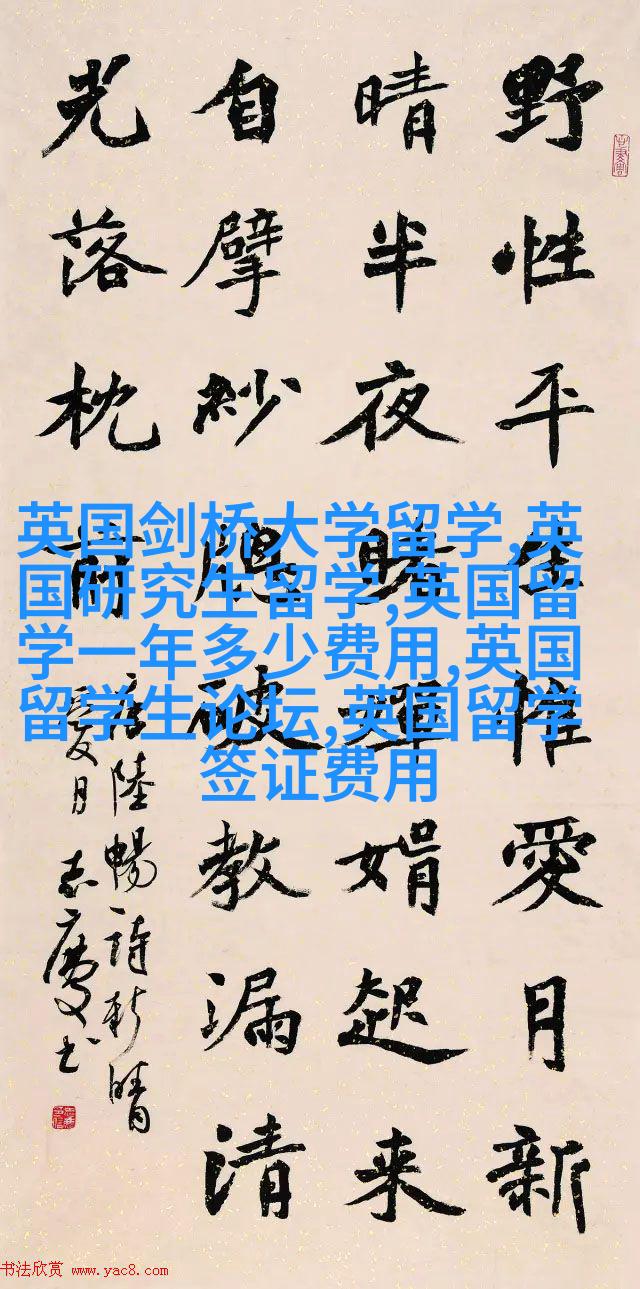 野性平生惟愛月新
晴半夜睹嬋娟起来
自擘紗破教漏清
光落枕前
唐陸暢詩新晴
愛月志慶书
英国剑桥大学留学,英
国研究生留学,英国留
学一年多少费用,英国
留学生论坛,英国留学
签证费用
书法欣赏 www.yac8.com